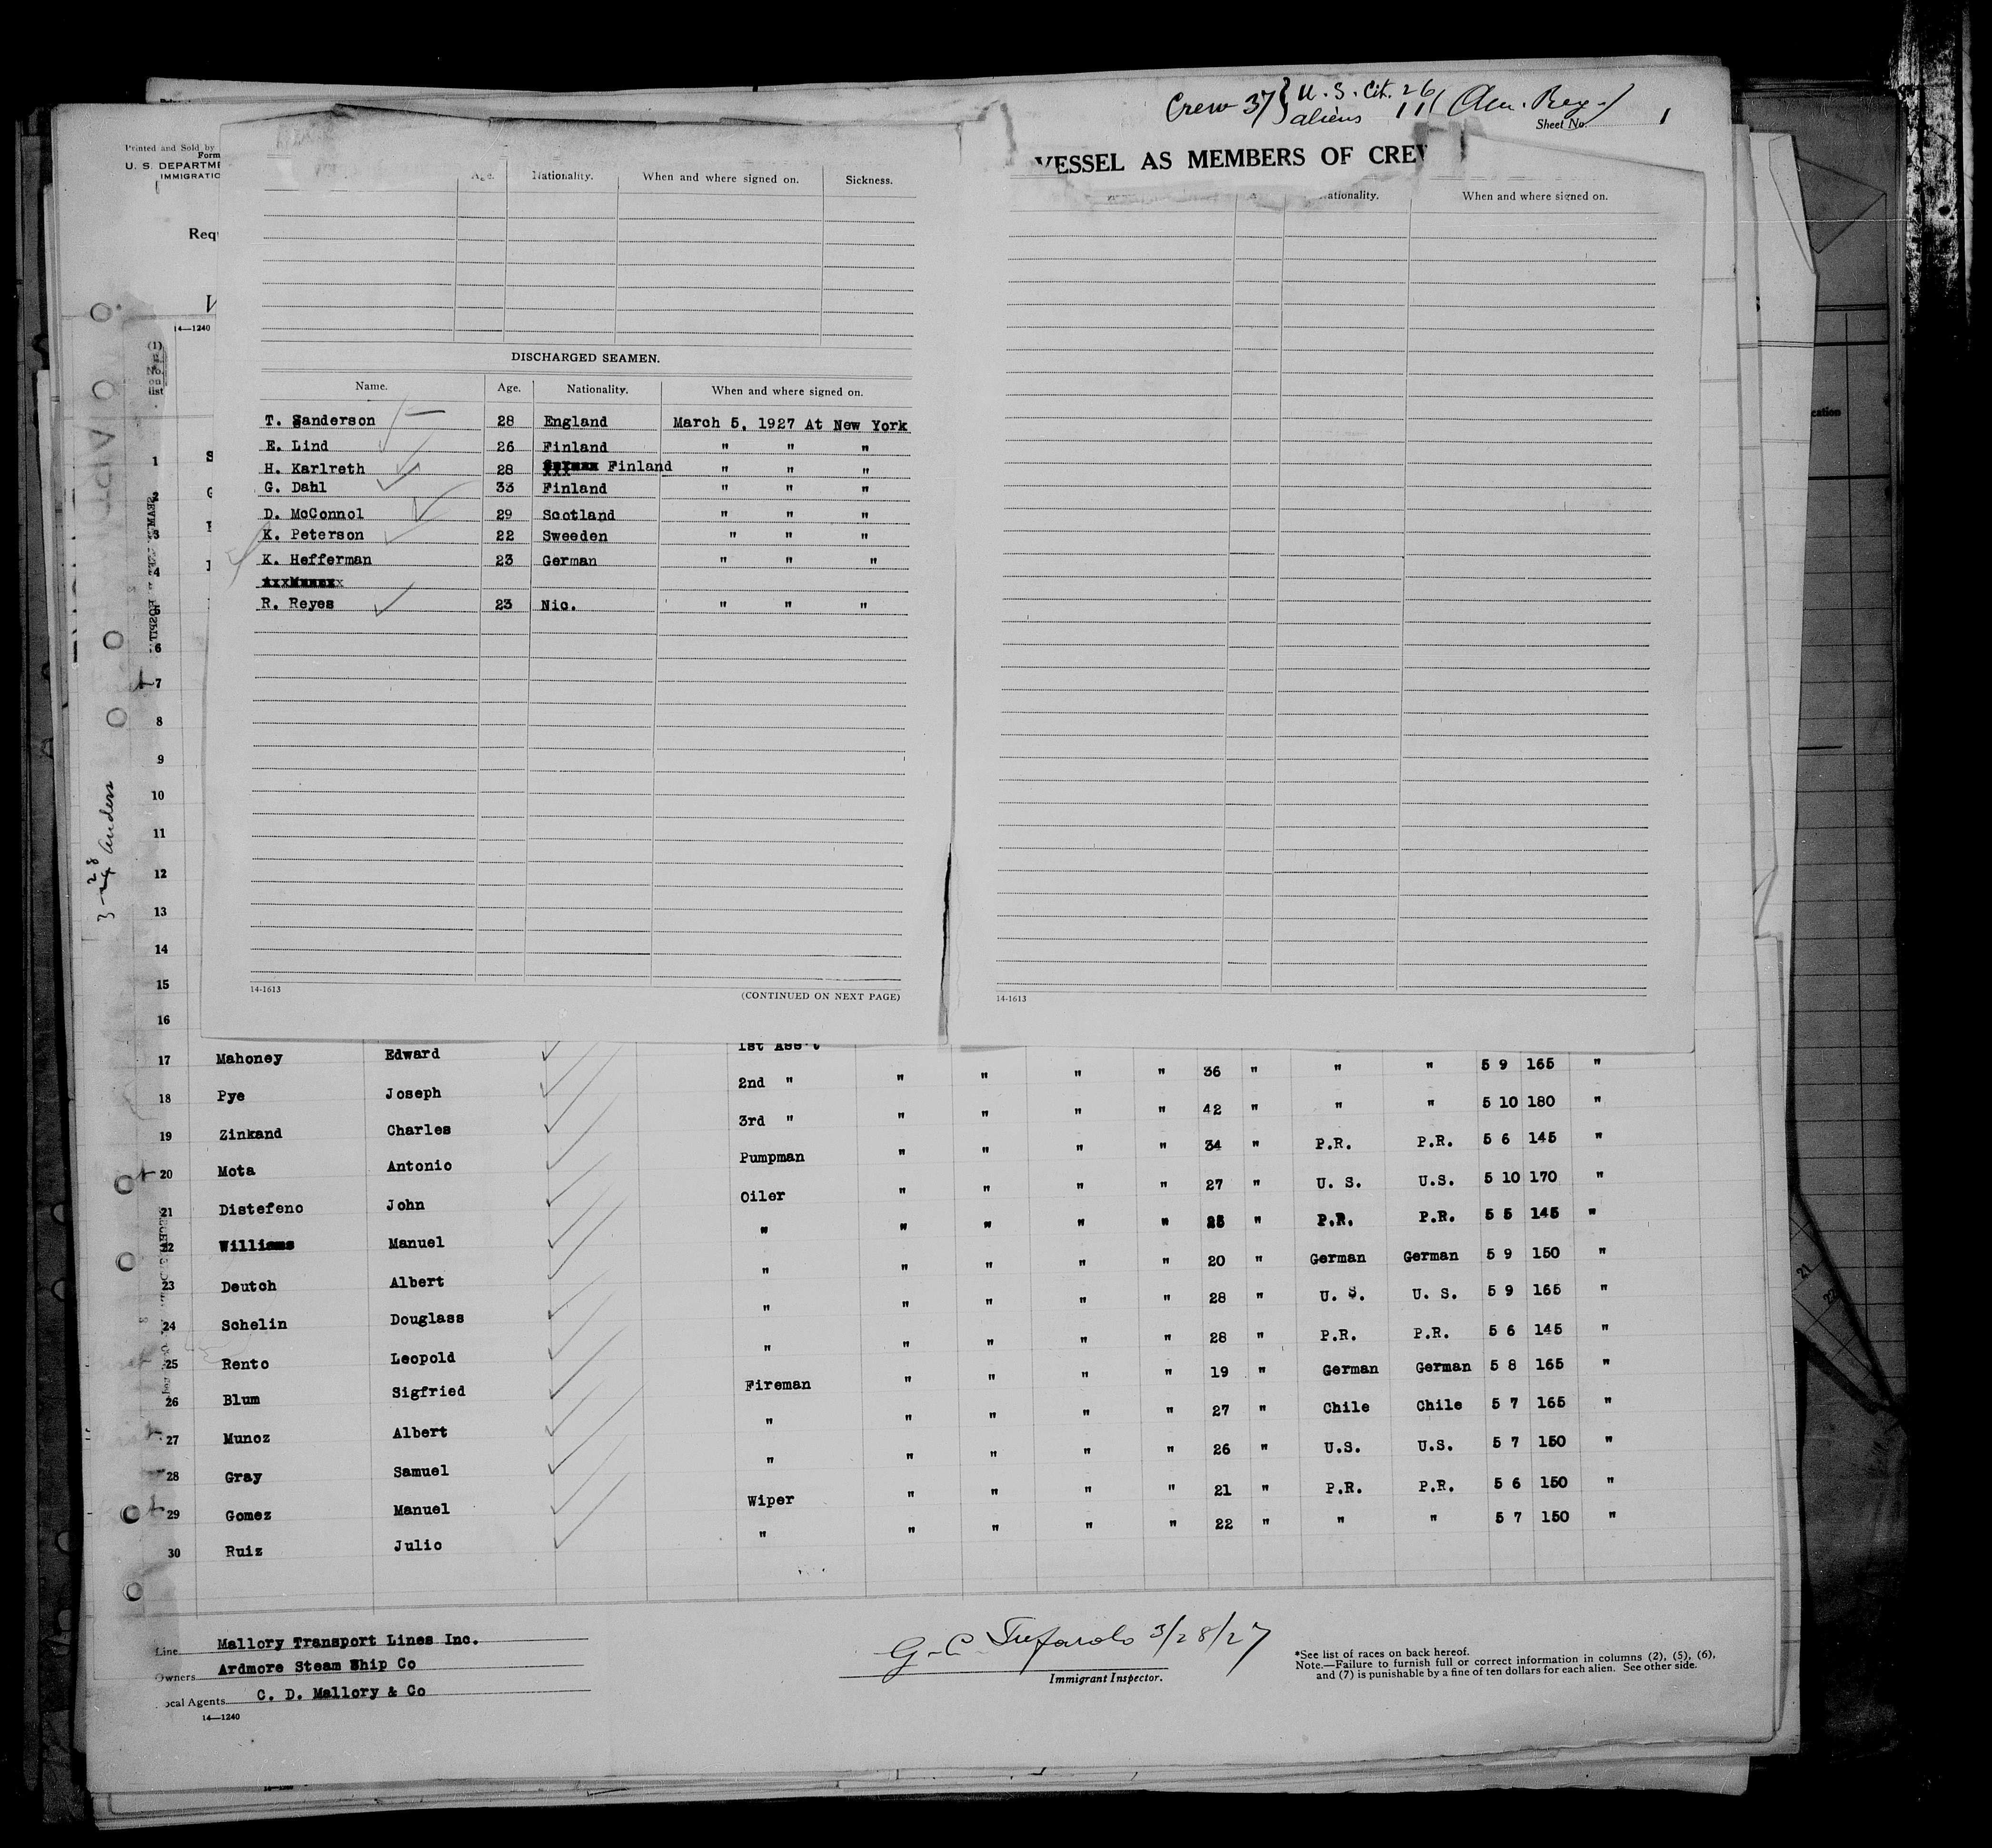 Crew 37 } U. S. Cit. 26
aliens 11
Sheet No. 1
Printed and Sold by
Form
U. S. DEPARTME
IMMIGRATIO
VESSEL AS MEMBERS OF CREW
Requ
14—1240
(1)
No.
on
list
Age. Nationality. When and where signed on. Sickness.
ationality. When and where signed on.
DISCHARGED SEAMEN.
Name. Age. Nationality. When and where signed on.
T. Sanderson 28 England March 5, 1927 At New York
E. Lind 26 Finland " " "
H. Karlreth 28 Finland " " "
G. Dahl 33 Finland " " "
D. McConnol 29 Scotland " " "
K. Peterson 22 Sweeden " " "
K. Hefferman 23 German " " "
R. Reyes 23 Nic. " " "
14-1613 (CONTINUED ON NEXT PAGE)
14-1613
1
2
3
4
5
6
7
8
9
10
11
12
13
14
15
16
17 Mahoney Edward 1st Ass't
18 Pye Joseph 2nd " " " " " 36 " " " 5 9 165 "
19 Zinkand Charles 3rd " " " " " 42 " " " 5 10 180 "
20 Mota Antonio Pumpman " " " " 34 " P.R. P.R. 5 6 145 "
21 Distefeno John Oiler " " " " 27 " U. S. U.S. 5 10 170 "
22 Williams Manuel " " " " " 25 " P.R. P.R. 5 5 145 "
23 Deutch Albert " " " " " 20 " German German 5 9 150 "
24 Schelin Douglass " " " " " 28 " U. S. U. S. 5 9 165 "
25 Rento Leopold " " " " " 28 " P.R. P.R. 5 6 145 "
26 Blum Sigfried Fireman " " " " 19 " German German 5 8 165 "
27 Munoz Albert " " " " " 27 " Chile Chile 5 7 165 "
28 Gray Samuel " " " " " 26 " U.S. U.S. 5 7 150 "
29 Gomez Manuel Wiper " " " " 21 " P.R. P.R. 5 6 150 "
30 Ruiz Julio " " " " " 22 " " " 5 7 150 "
Line Mallory Transport Lines Inc.
Owners Ardmore Steam Ship Co
ocal Agents C. D. Mallory & Co
14—1240
3/28/27
Immigrant Inspector.
*See list of races on back hereof.
Note.—Failure to furnish full or correct information in columns (2), (5), (6),
and (7) is punishable by a fine of ten dollars for each alien. See other side.